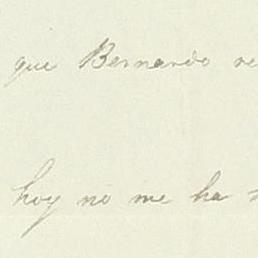 que Bernardo
hoy no me ha